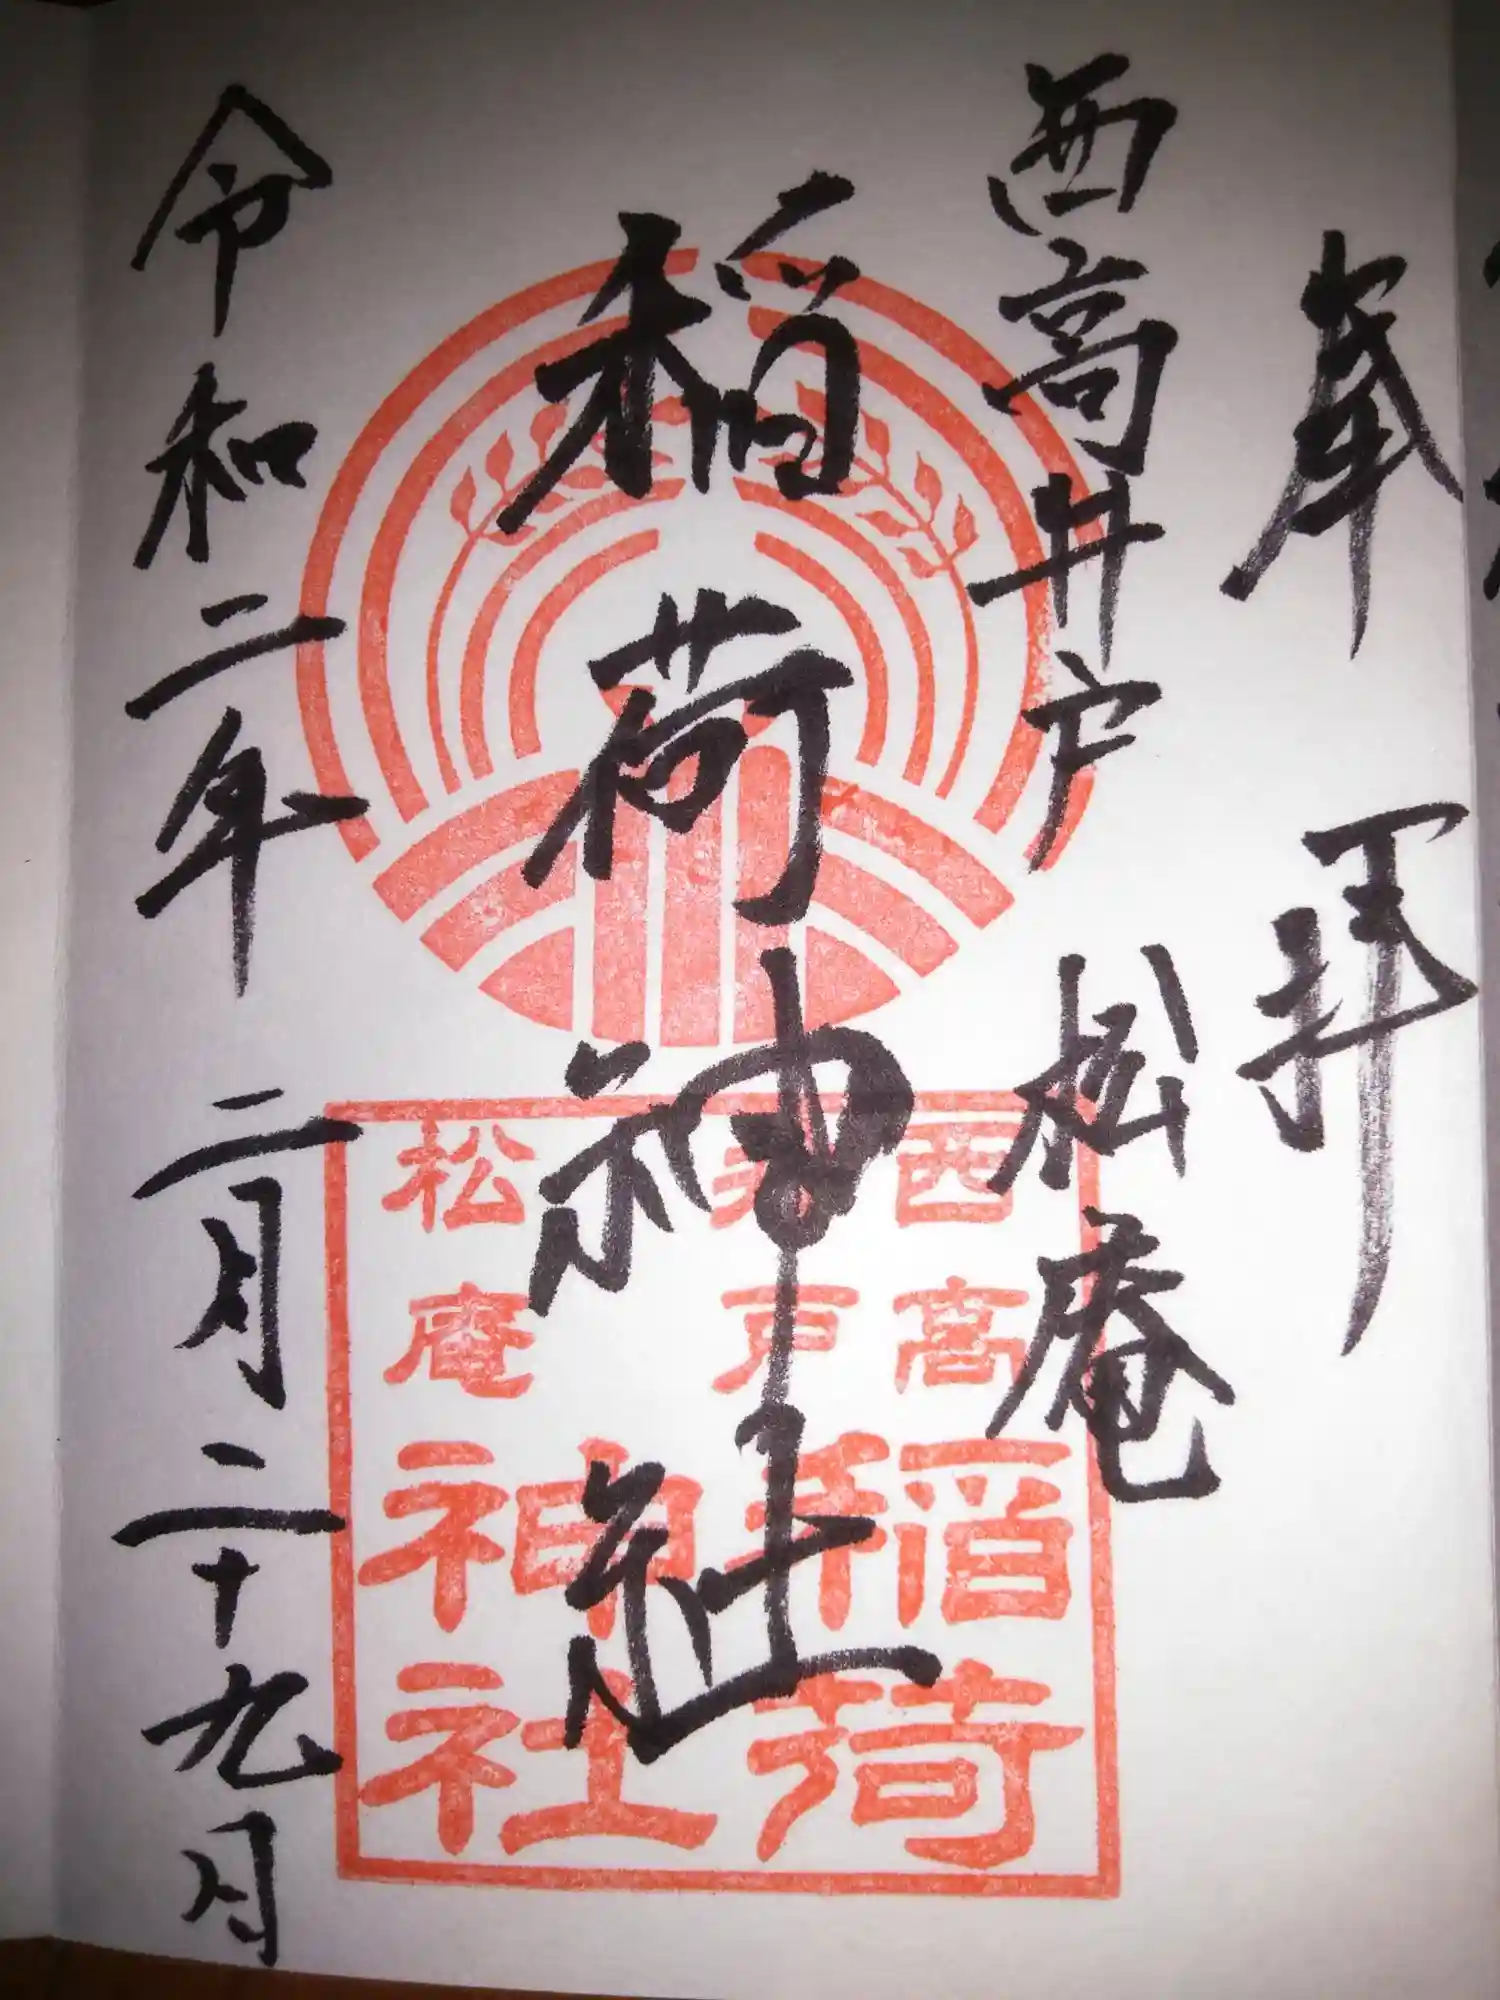 奉拝
西高井戸松庵
稲荷神社
令和二年二月二十九日
西高
井戸
松庵
稲荷
神社